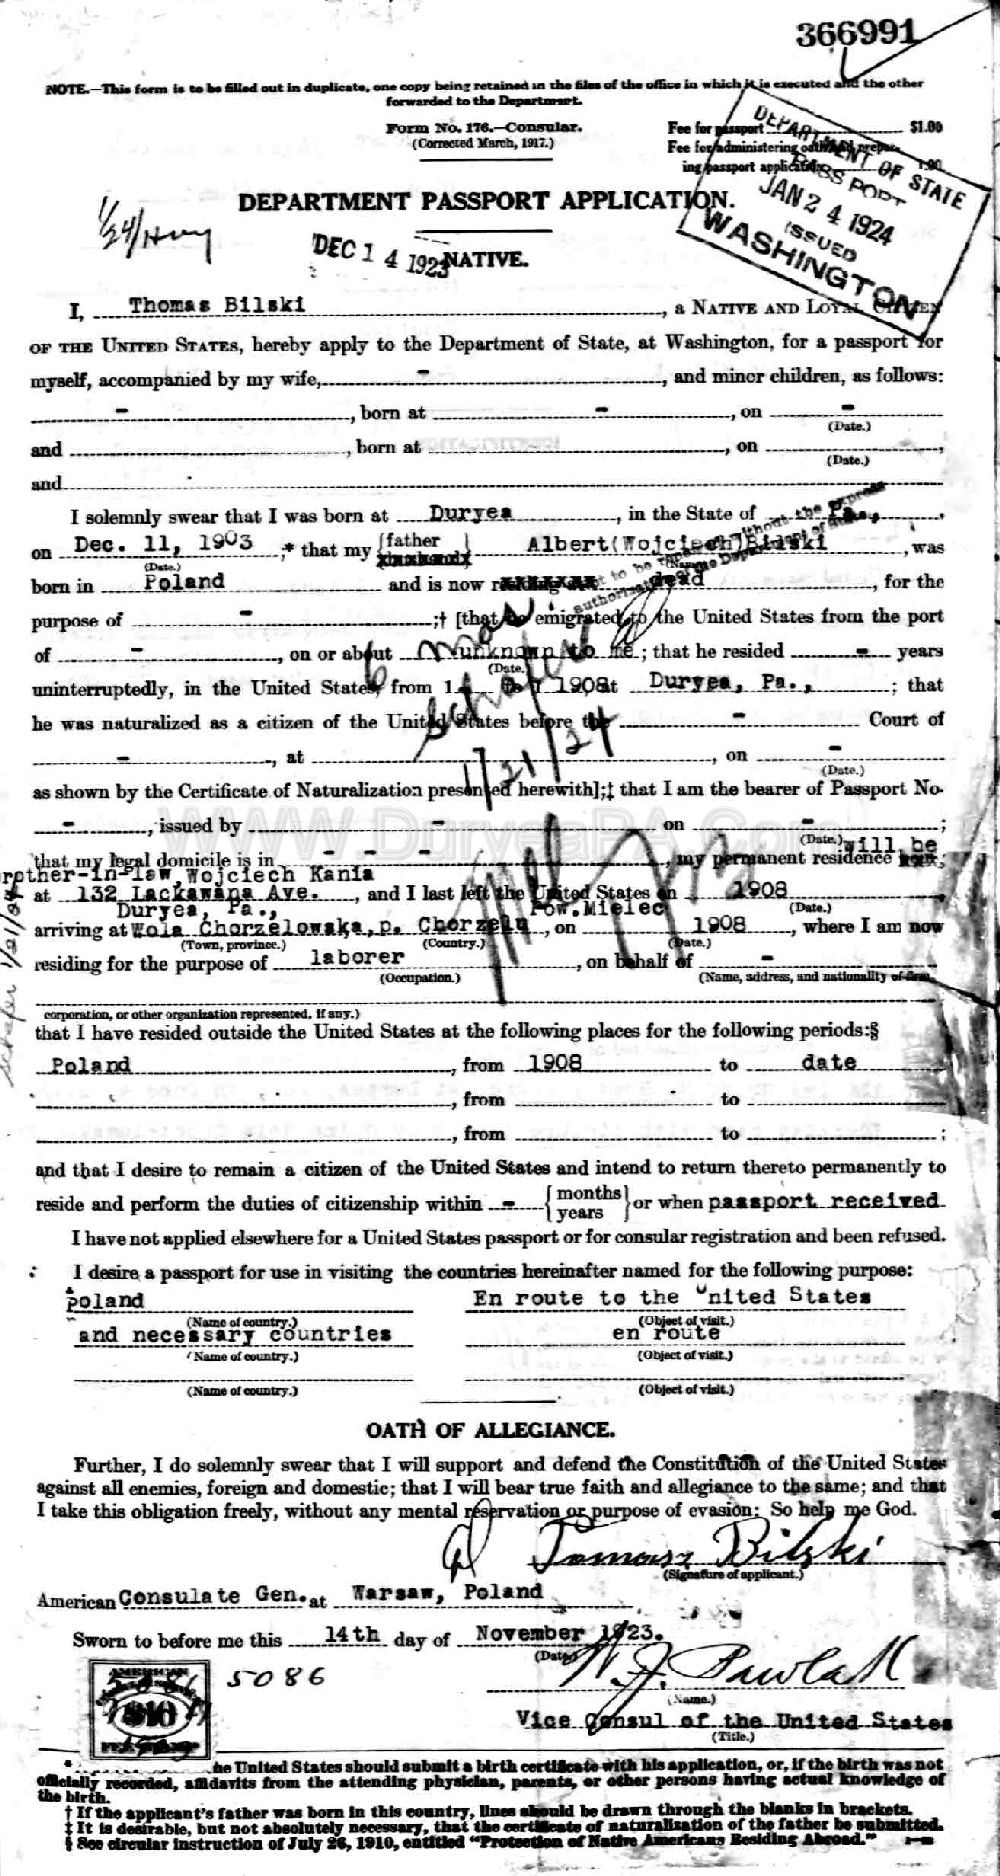 366991
NOTE.—This form is to be filled out in duplicate, one copy being retained in the files of the office in which it is executed and the other
forwarded to the Department.
Form No. 176.—Consular.
(Corrected March, 1917.)
Fee for passport $1.00
Fee for administering oath and prepar-
ing passport application 1.00
DEPARTMENT OF STATE
PASSPORT
JAN 24 1924
ISSUED
WASHINGTON
DEPARTMENT PASSPORT APPLICATION.
1/24/
DEC 14 1923
NATIVE.
I, Thomas Bilski, a NATIVE AND LOYAL CITIZEN
OF THE UNITED STATES, hereby apply to the Department of State, at Washington, for a passport for
myself, accompanied by my wife, -, and minor children, as follows:
-, born at -, on -
(Date.)
and, born at, on,
(Date.)
and
I solemnly swear that I was born at Duryea, in the State of Pa.,
on Dec. 11, 1903,* that my {father} Albert(Wojciech)Bilski, was
(Date.)
born in Poland and is now dead, for the
purpose of -;† [that he emigrated to the United States from the port
of -, on or about unknown to me; that he resided - years
(Date.)
uninterruptedly, in the United States, from 1 1908 at Duryea, Pa.,; that
he was naturalized as a citizen of the United States before the - Court of
-, at, on -
(Date.)
as shown by the Certificate of Naturalization presented herewith];‡ that I am the bearer of Passport No.
-, issued by - on -;
(Date.)
WWW.DuryeaPA.Com
6 mos
Schafer
1/21/24
that my legal domicile is in - - -, my permanent residence will be
rother-in-law, Wojciech Kania
at 132 Lackawana Ave., and I last left the United States on 1908
Duryea, Pa.,
(Date.)
Pow.Mielec
arriving at Wola Chorzelowska, p. Chorzelu, on 1908, where I am now
(Town, province.) (Country.) (Date.)
residing for the purpose of laborer, on behalf of -
(Occupation.) (Name, address, and nationality of firm,
Schafer 1/21/24
corporation, or other organization represented, if any.)
that I have resided outside the United States at the following places for the following periods:§
Poland, from 1908 to date
, from - to
, from to ;
and that I desire to remain a citizen of the United States and intend to return thereto permanently to
reside and perform the duties of citizenship within - {months years} or when passport received
I have not applied elsewhere for a United States passport or for consular registration and been refused.
I desire a passport for use in visiting the countries hereinafter named for the following purpose:
Poland En route to the United States
(Name of country.) (Object of visit.)
and necessary countries en route
(Name of country.) (Object of visit.)
(Name of country.) (Object of visit.)
OATH OF ALLEGIANCE.
Further, I do solemnly swear that I will support and defend the Constitution of the United States
against all enemies, foreign and domestic; that I will bear true faith and allegiance to the same; and that
I take this obligation freely, without any mental reservation or purpose of evasion: So help me God.
Tomasz Bilski
(Signature of applicant.)
American Consulate Gen. at Warsaw, Poland
Sworn to before me this 14th day of November 1923.
(Date)
5086
W. J. Pawlak
(Name.)
Vice Consul of the United States
(Title.)
he United States should submit a birth certificate with his application, or, if the birth was not
officially recorded, affidavits from the attending physician, parents, or other persons having actual knowledge of
the birth.
† If the applicant's father was born in this country, lines should be drawn through the blanks in brackets.
‡ It is desirable, but not absolutely necessary, that the certificate of naturalization of the father be submitted.
§ See circular instruction of July 26, 1910, entitled "Protection of Native Americans Residing Abroad."